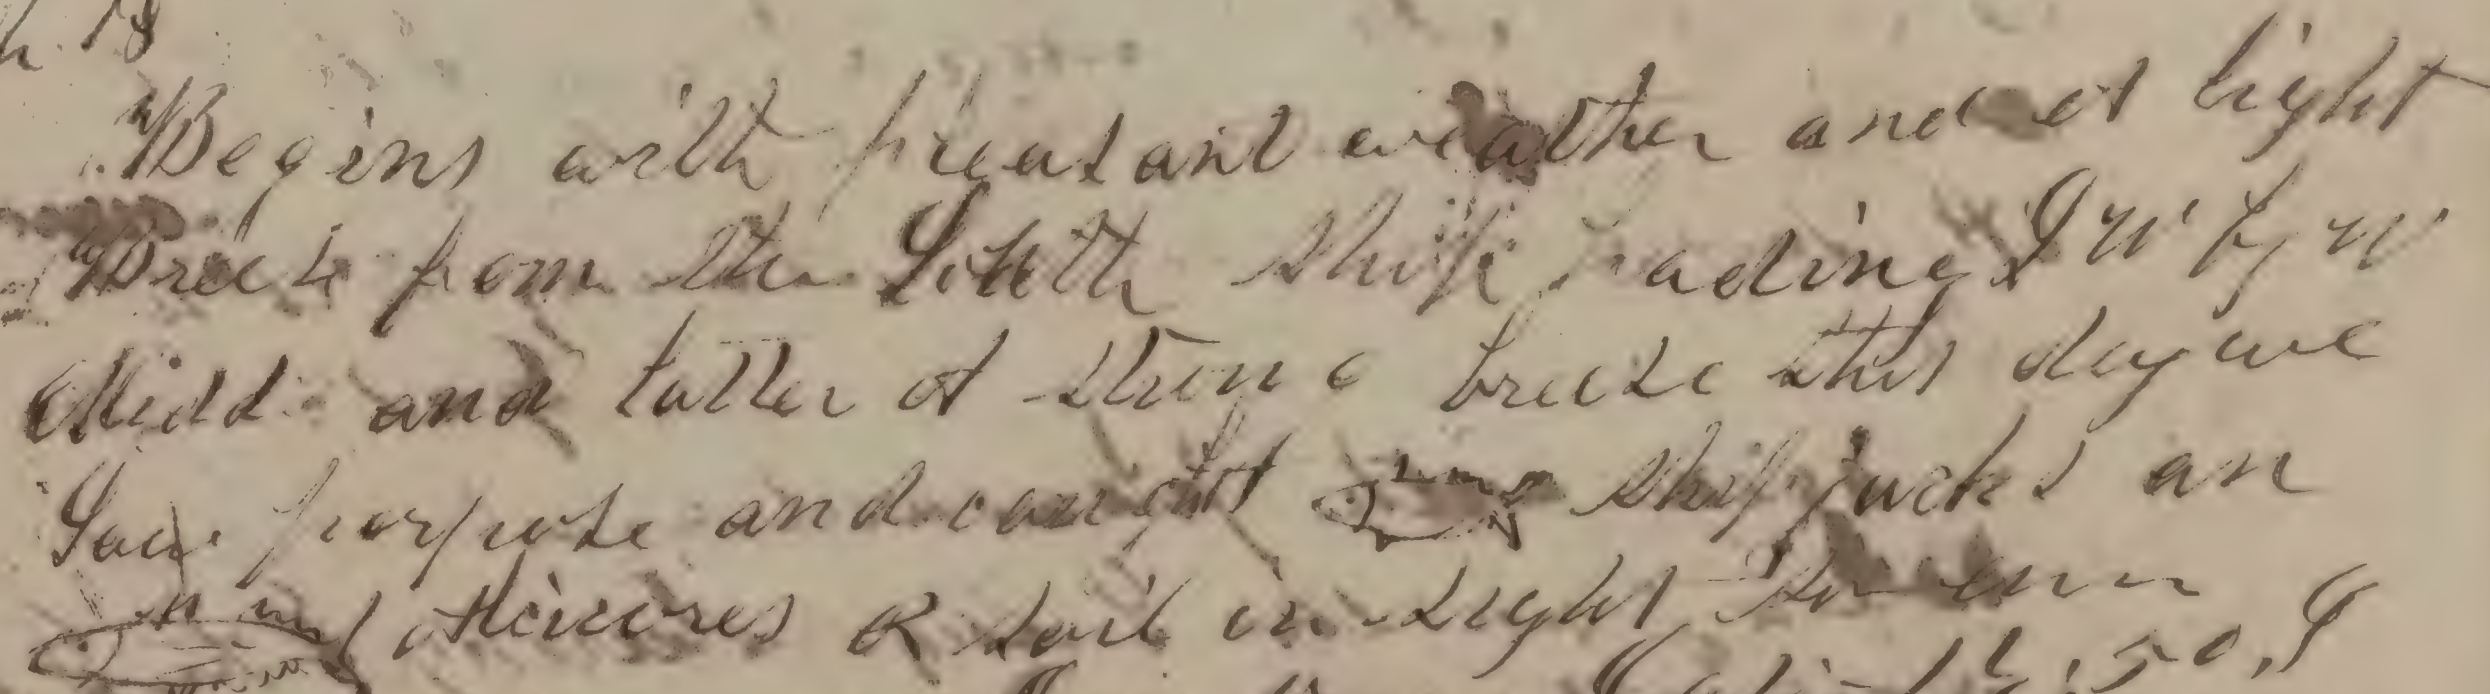 18
Begins with pleasant weather and a light
Breeze from the South Ship heading S W by W
Midd and latter a strong breeze this day we
saw porpose and caught skipjacks an
a sail in sight So ends
50, S